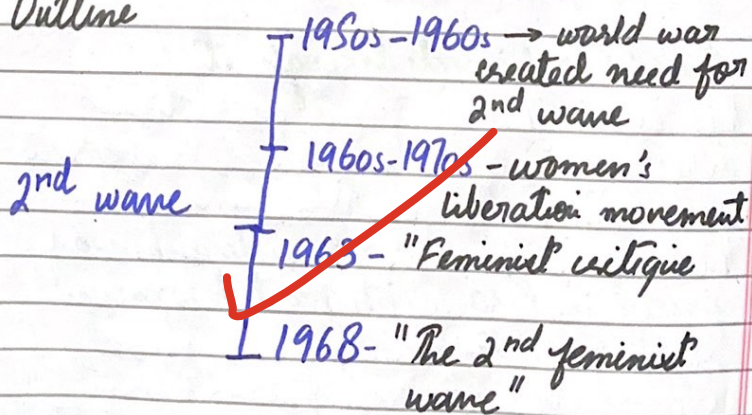 Outline
1950s-1960s → world war
created need for
2nd wave
1960s-1970s - women's
2nd wave
liberation movement
1963 - "Feminist critique
1968- "The 2nd feminist
wave"